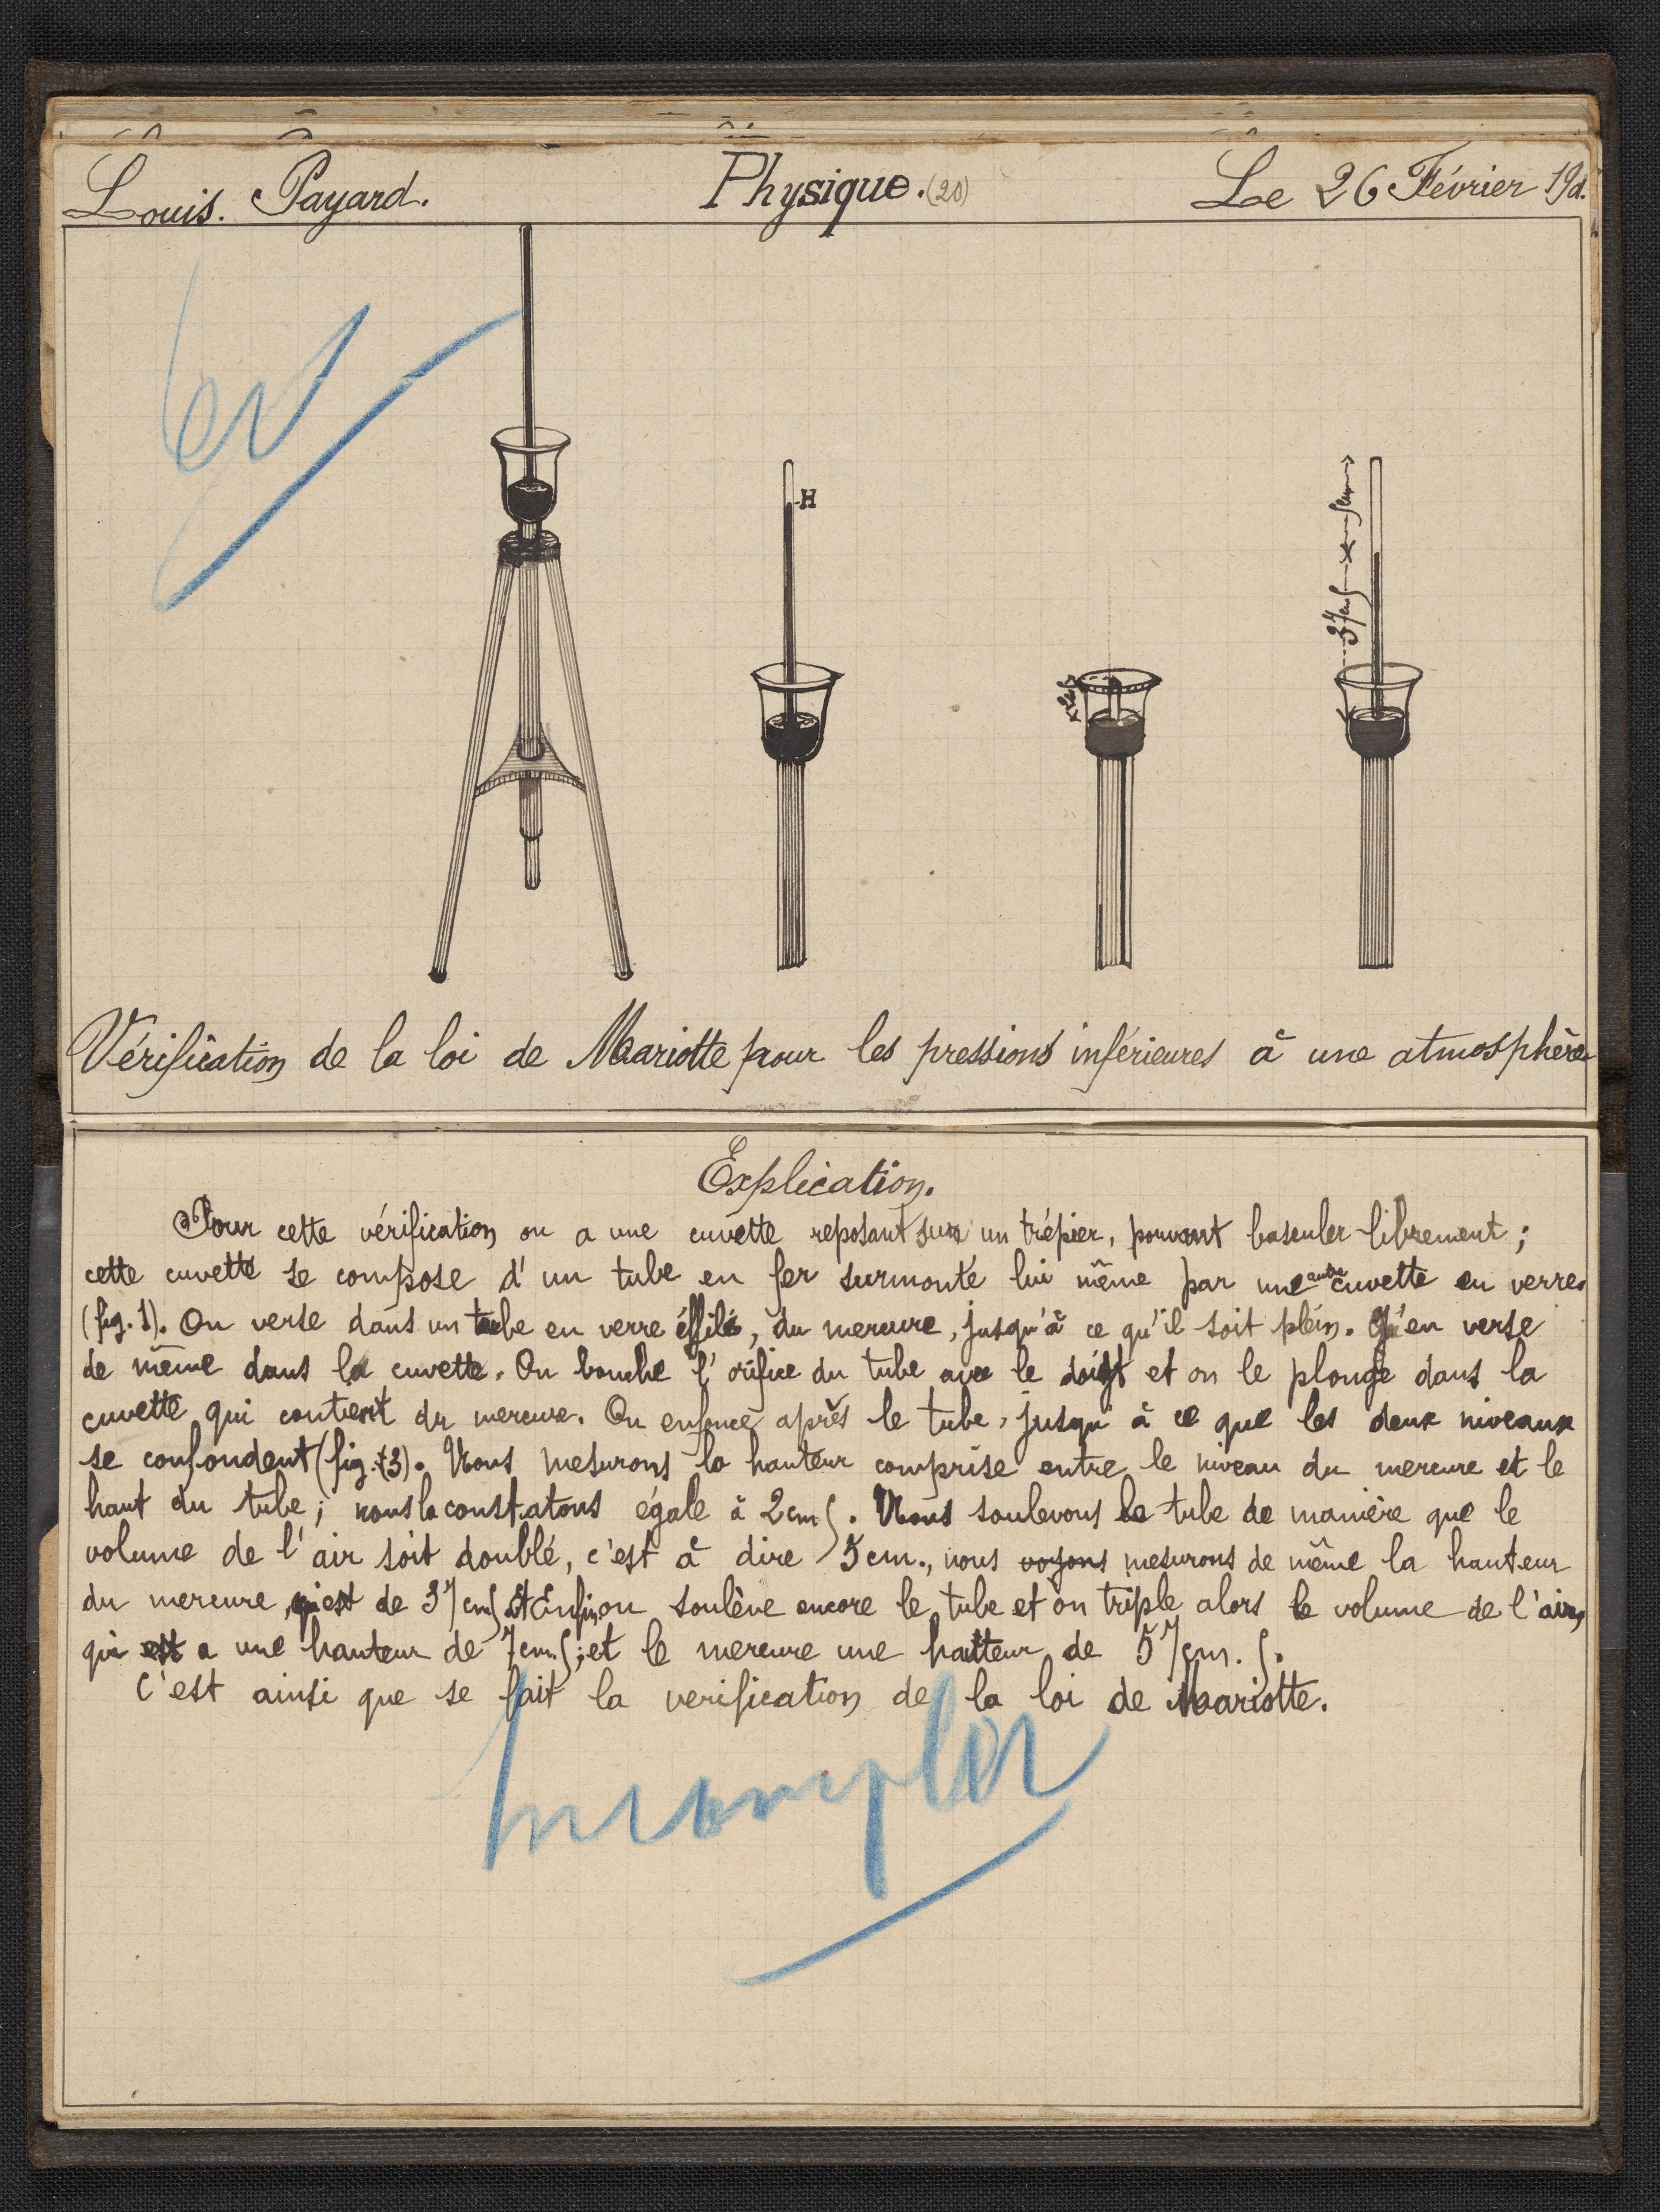 Louis. Payard. Physique. (20) Le 26 Février 19
H
Vérification de la loi de Mariotte pour les pressions inférieures à une atmosphère
Explication.
Pour cette vérification on a une cuvette reposant sur un trépier, pouvant basculer librement ;
cette cuvette se compose d'un tube en fer surmonté lui même par une autre cuvette en verre
(fig. 1). On verse dans un tube en verre éffilé, du mercure, jusqu'à ce qu'il soit plein. en verse
de même dans la cuvette. On bouche l'orifice du tube avec le doigt et on le plonge dans la
cuvette qui contient du mercure. On enfonce après le tube, jusqu'à ce que les deux niveaux
se confondent (fig. 3). Nous mesurons la hauteur comprise entre le niveau du mercure et le
haut du tube ; nous la constatons égale à 2cm 5. Nous soulevons le tube de manière que le
volume de l'air soit doublé, c'est à dire 5 cm., nous voyons mesurons de même la hauteur
du mercure, qui est de 37 cm 5 Enfin, on soulève encore le tube et on triple alors le volume de l'air,
qui est a une hauteur de 7cm. 5 ; et le mercure une hatteur de 57cm. 5.
C'est ainsi que se fait la verification de la loi de Mariotte.